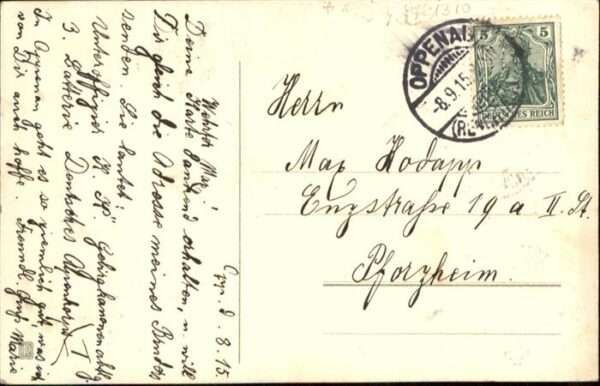 OPPENAU
-8.9.15
(RENCHTAL)
5 5
DEUTSCHES REICH
Herrn
Max Hodapp
Enzstraße 19 a II. St.
Pforzheim.
d. 8. 15.
Werter Max!
Deine Karte dankend erhalten, u. will
Dir gleich die Adresse meines Bruders
senden. Sie lautet:
Unteroffizier K. H.
3. Batterie Deutsches Alpenkorps
In Oppenau geht es so ziemlich gut, was ich
von Dir auch hoffe. Freundl. Gruß Marie